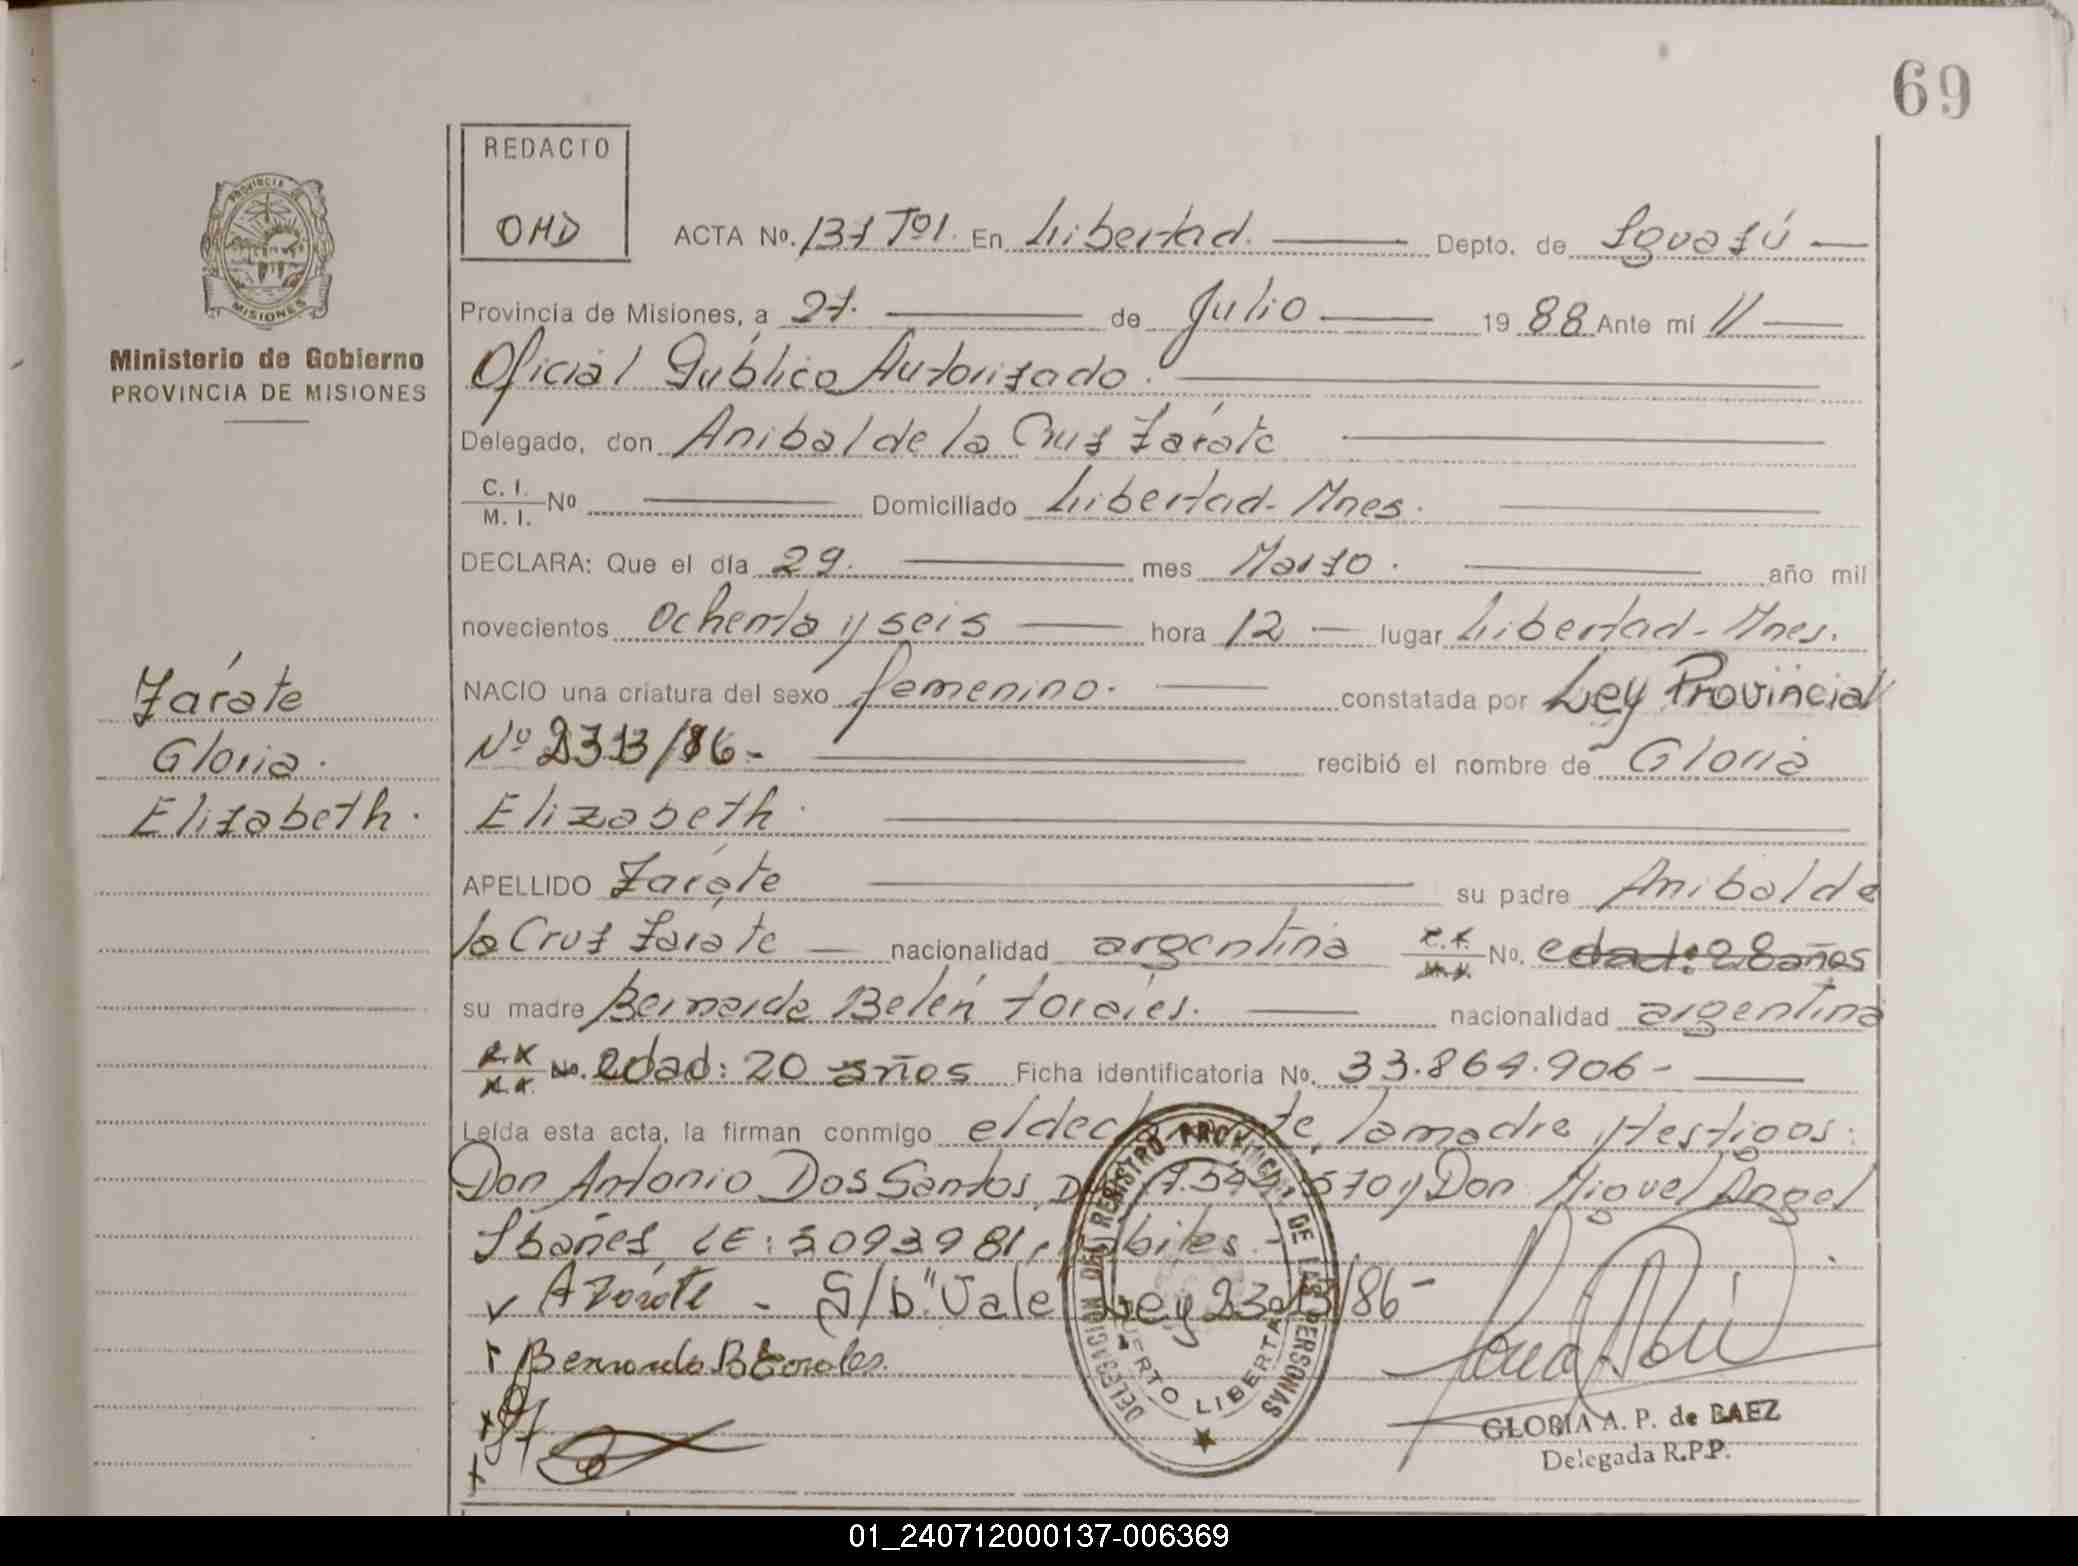 69
REDACTO
OHD
PROVINCIA DE
MISIONES
Ministerio de Gobierno
PROVINCIA DE MISIONES
ACTA Nº. 131 Tº1. En Libertad. Depto. de Iguazú
Provincia de Misiones, a 27. de Julio 1988 Ante mí
Oficial Público Autorizado.
Delegado, don Anibal de la Cruz Zárate
C. I.
M. I. Nº Domiciliado Libertad-Mnes.
DECLARA: Que el día 29. mes Marzo. año mil
novecientos ochenta y seis hora 12 lugar Libertad-Mnes.
NACIO una criatura del sexo femenino. constatada por Ley Provincial
Nº 2313/86- recibió el nombre de Gloria
Elizabeth.
Zárate
Gloria.
Elizabeth.
APELLIDO Zárate su padre Anibal de
la Cruz Zárate nacionalidad argentina No. edad: 28 años
su madre Bernarda Belén nacionalidad argentina
No. edad: 20 años Ficha identificatoria No. 33.864.906-
Leída esta acta, la firman conmigo la madre y testigos:
Don Antonio Dos Santos, 570 y Don Miguel Angel
Ibañez, LE: 5093981,
A Zárate - S/b "Vale Ley 2313/86-
Bernarda B
DELEGACION DEL REGISTRO PROVINCIAL DE LAS PERSONAS
PUERTO LIBERTAD
GLORIA A. P. de BAEZ
Delegada R.P.P.
01_240712000137-006369